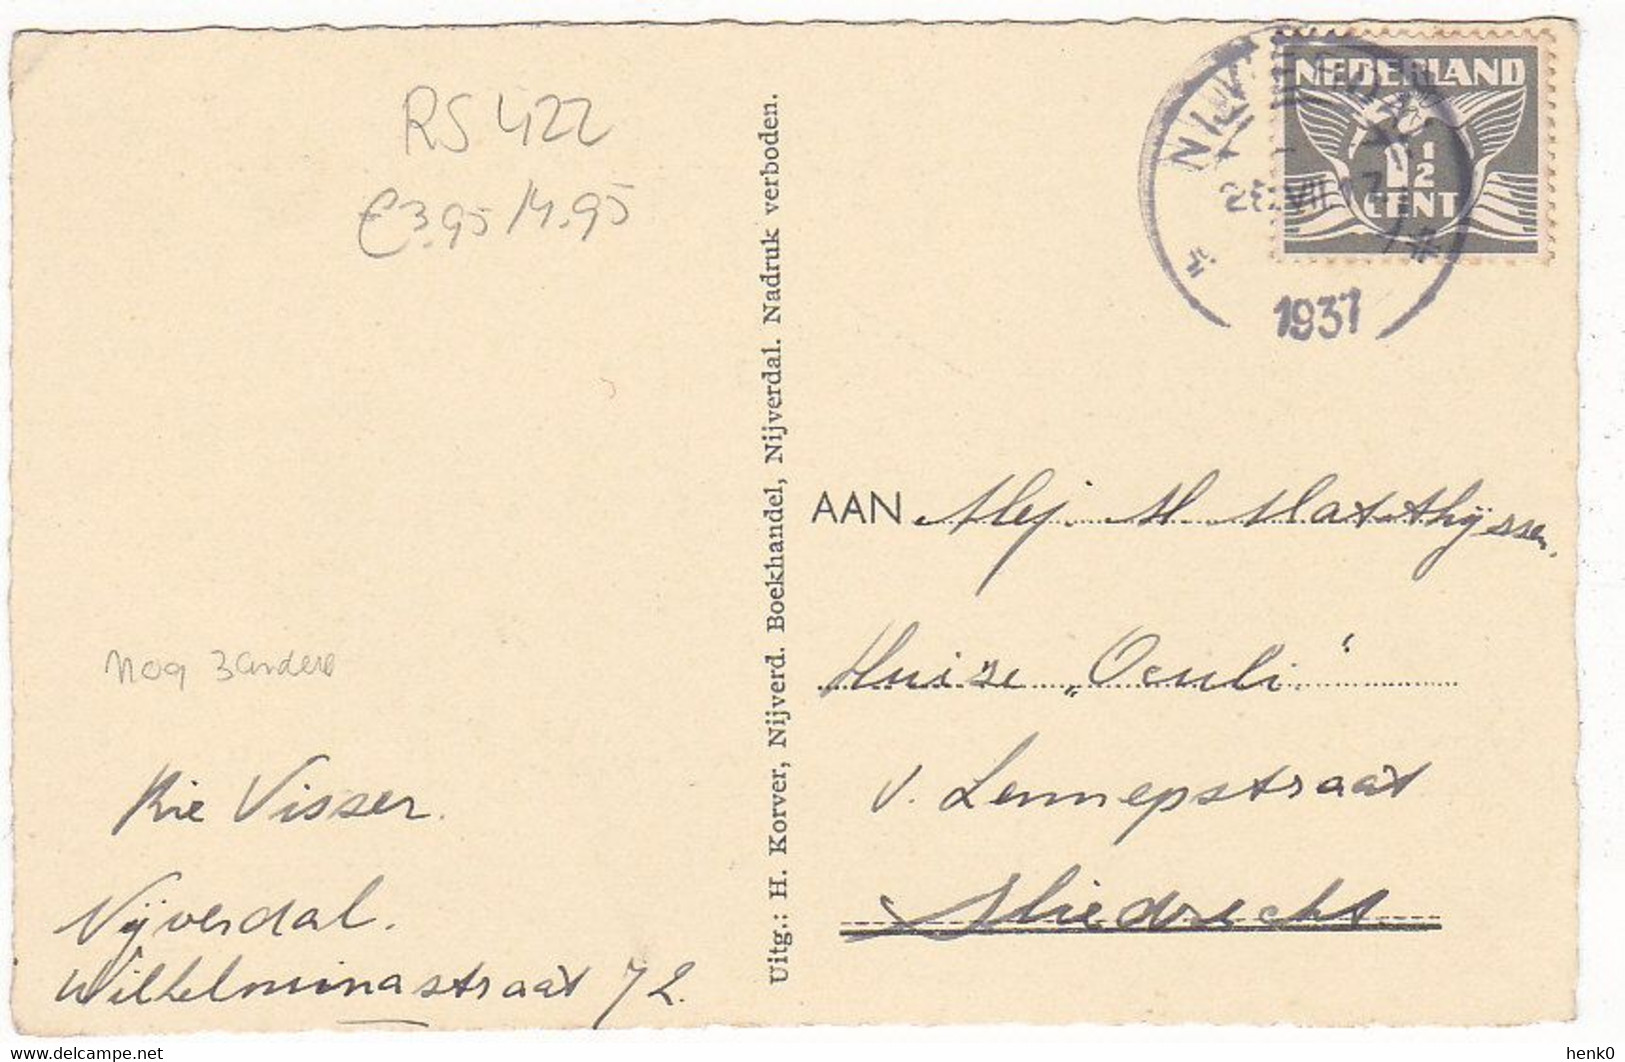 RS 422
€3.95/4.95
nog 3 andere
Rie Visser.
Nijverdal.
Wilhelminastraat 72.
Uitg.: H. Korver, Nijverd. Boekhandel, Nijverdal. Nadruk verboden.
NEDERLAND
1 1/2
CENT
NIJVERDAL
VII
1937
AAN Mej. M. Matthijssen.
Huize „Oculi"
v. Lennepstraat
Sliedrecht.
delcampe.net
henk0